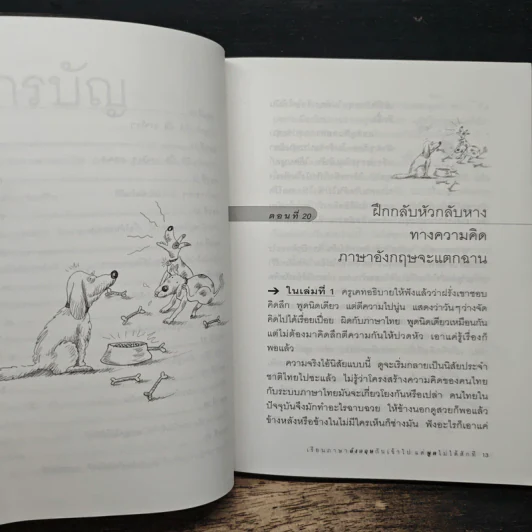 ารบัญ
ตอนที่ 20
ฝึกกลับหัวกลับหาง
ทางความคิด
ภาษาอังกฤษจะแตกฉาน
➔ ในเล่มที่ 1 ครูเคทอธิบายให้ฟังแล้วว่าฝรั่งเขาชอบ
คิดลึก พูดนิดเดียว แต่ตีความไปนู่น แสดงว่าวันๆว่างจัด
คิดไปได้เรื่อยเปื่อย ผิดกับภาษาไทย พูดนิดเดียวเหมือนกัน
แต่ไม่ต้องมาคิดลึกตีความกันให้ปวดหัว เอาแค่รู้เรื่องก็
พอแล้ว
ความจริงไอ้นิสัยแบบนี้ ดูจะเริ่มกลายเป็นนิสัยประจำ
ชาติไทยไปซะแล้ว ไม่รู้ว่าโครงสร้างความคิดของคนไทย
กับระบบภาษาไทยมันจะเกี่ยวโยงกันหรือเปล่า คนไทยใน
ปัจจุบันจึงมักทำอะไรฉาบฉวย ให้ข้างนอกดูสวยก็พอแล้ว
ข้างหลังหรือข้างในไม่มีใครเห็นก็ช่างมัน ฟังอะไรก็เอาแค่
เรียนภาษาอังกฤษกับเจ้าไป แต่พูดไม่ได้สักที 13